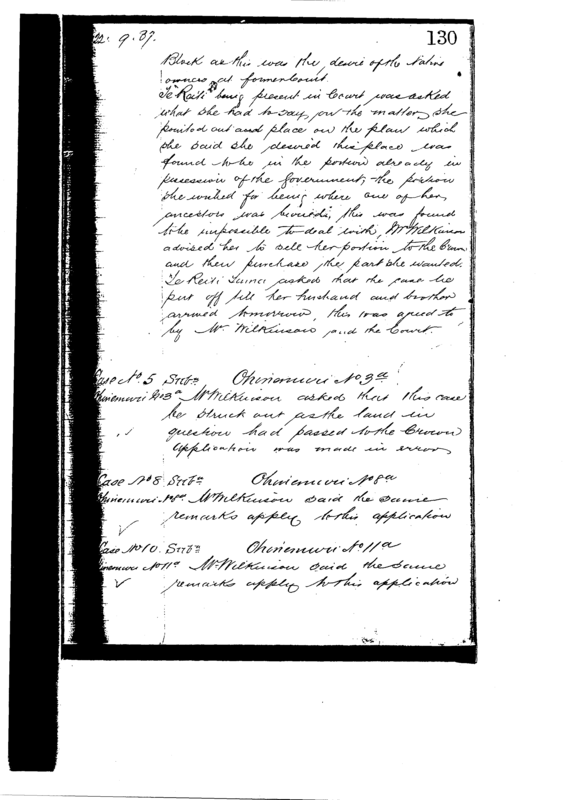 22. 9. 87.
130
Block as this was the desire of the Native
owners at former Court.
Te Reiti being present in Court was asked
what she had to say, on the matter, she
pointed out and place on the plan which
she said she desired this place was
found to be in the portion already in
possession of the Government, the portion
she wished for being where one of her
ancestors was buried, this was found
to be impossible to deal with, Mr Wilkinson
advised her to sell her portion to the Crown
and then purchase the part she wanted.
Te Reiti asked that the case be
put off till her husband and brother
arrived tomorrow, this was agreed to
by Mr Wilkinson and the Court
Case No. 5 Subn Ohinemuri No 3a
Ohinemuri No 3a Mr Wilkinson asked that this case
be struck out as the land in
question had passed to the Crown
application was made in error
Case No 8 Subn Ohinemuri No 8a
Ohinemuri No 8a Mr Wilkinson said the same
remarks apply to this application
Case No 10. Subn Ohinemuri No 11a
Ohinemuri No 11a Mr Wilkinson said the same
remarks apply to this application